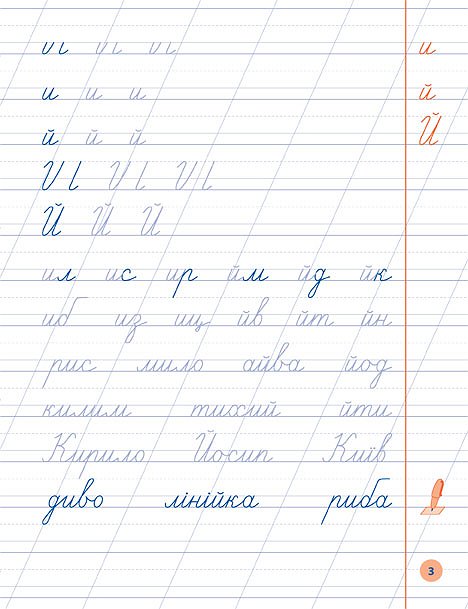 и
и и и й
й й й Й
Й Й Й
ил ис ир йм йд йк
иб из иц йв йт йн
рис мило айва йод
килим тихий йти
Кирило Йосип Київ
диво лінійка риба
3